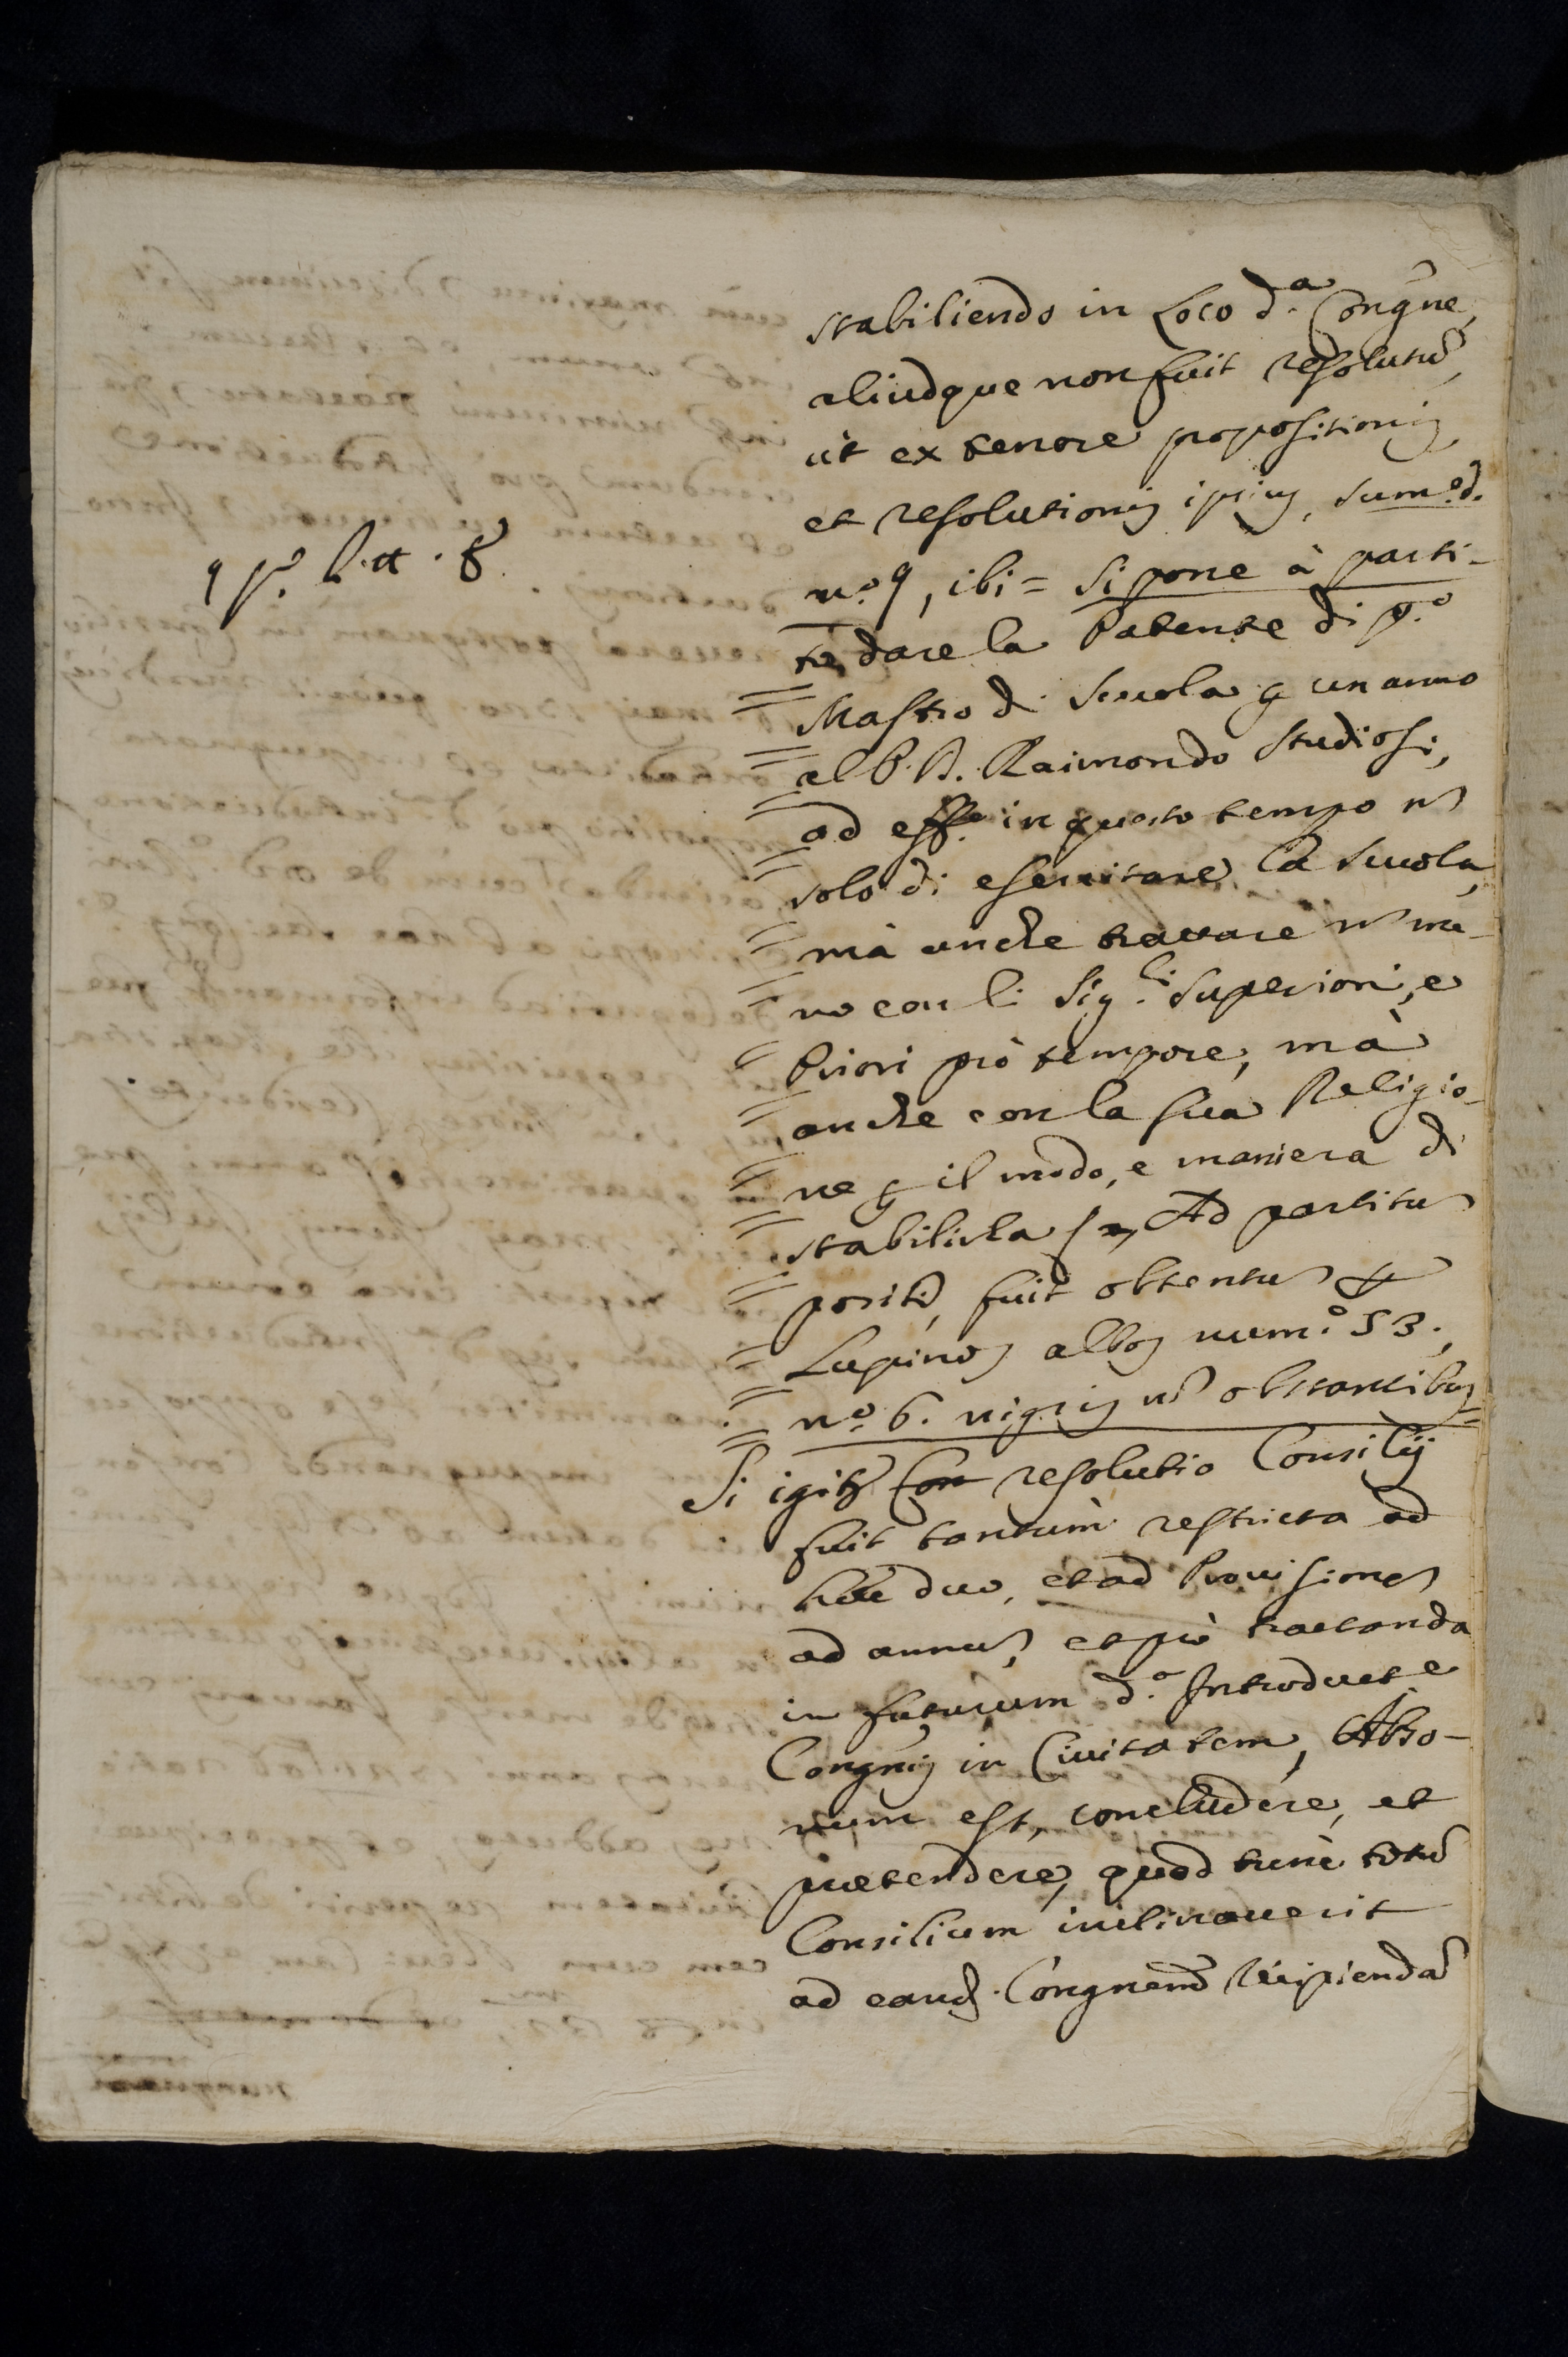 9 p.º litt. 8
stabiliendo in Loco d.ª Congne,
aliudque non fuit resolutũ,
ut ex tenore propositionis,
et resolutionis ipsius, sum.º d.
n.º 9, ibi = Si pone à parti-
to, dare la Patente di p.º
Mastro di Scuola p un anno
al P. B. Raimondo Studiosi,
ad eff.º in questo tempo nõ
solo di esercitare la scuola,
mà anche trattare nõ me-
no con li Sig.ri Superiori, e
Priori prò tempore, mà
anche con la sua Religio-
ne p il modo, e maniera di
stabilirla Ad partitũ
positũ, fuit obtentũ p
Lupinos albos num.º 53.,
n.º 6. nigris nõ obstantibus =
Si igitr resolutio Consilij
fuit tantùm restricta ad
hæc duo, et ad Provisionem
ad annũ, et prò tractanda
in futurum d.ª Introduct.e
Congnis in Civitatem, Abso-
num est, concludere, et
prætendere, quod tunc totũ
Consilium inclinaverit
ad eand. Congnem recipiendã